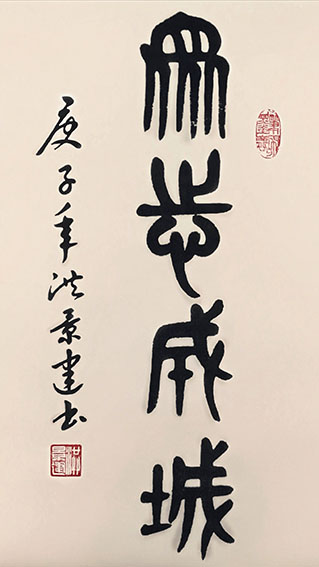 眾志成城
庚子年洪景建书